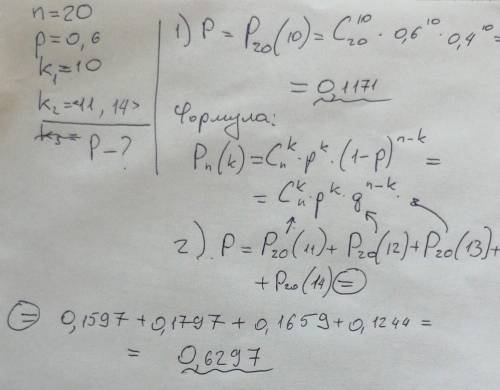 n=20
p=0,6
k₁=10
k₂=<11, 14>
k₃=
P-?
1) P = P₂₀(10) = C₂₀¹⁰ · 0,6¹⁰ · 0,4¹⁰ =
= 0,1171
Формула:
Pₙ(k) = Cₙᵏ · pᵏ · (1-p)ⁿ⁻ᵏ =
= Cₙᵏ · pᵏ · qⁿ⁻ᵏ.
2). P = P₂₀(11) + P₂₀(12) + P₂₀(13) +
+ P₂₀(14) =
= 0,1597 + 0,1797 + 0,1659 + 0,1244 =
= 0,6297